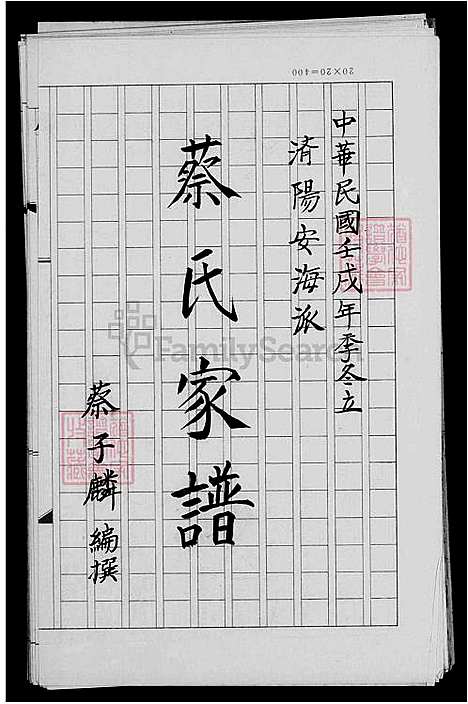 20×20=400
中華民國壬戌年季冬立
済陽安海派
蔡氏家譜
蔡子麟編撰
FamilySearch